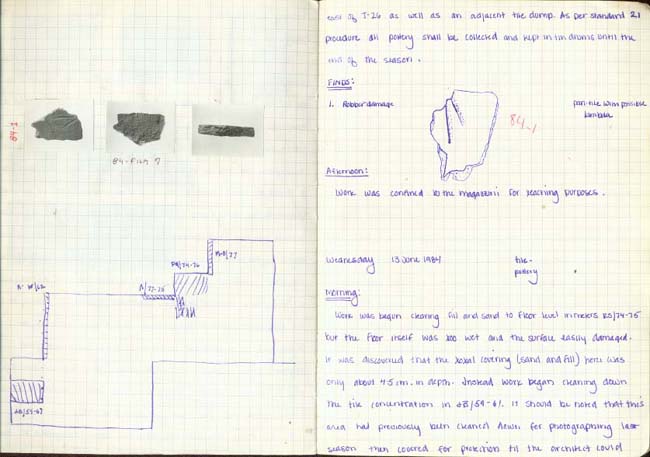 84-1
84-Film 7
A/77-75
east of T-26 as well as an adjacent tile dump. As per standard 21
procedure all pottery shall be collected and kept in tin drums until the
end of the season.
FINDS:
1. Robber damage
pan tile with possible
lambda
84-1
Afternoon:
Work was confined to the magazzini for teaching purposes.
Wednesday 13 June 1984
tile-
pottery
Morning:
Work was begun clearing fill and sand to floor level in meters
but the floor itself was too wet and the surface easily damaged.
It was discovered that the total covering (sand and fill) here was
only about 4.5 cm. in depth. Instead work began cleaning down
the tile concentration in It should be noted that this
area had previously been cleaned down for photographing last
season then covered for protection til the architect could